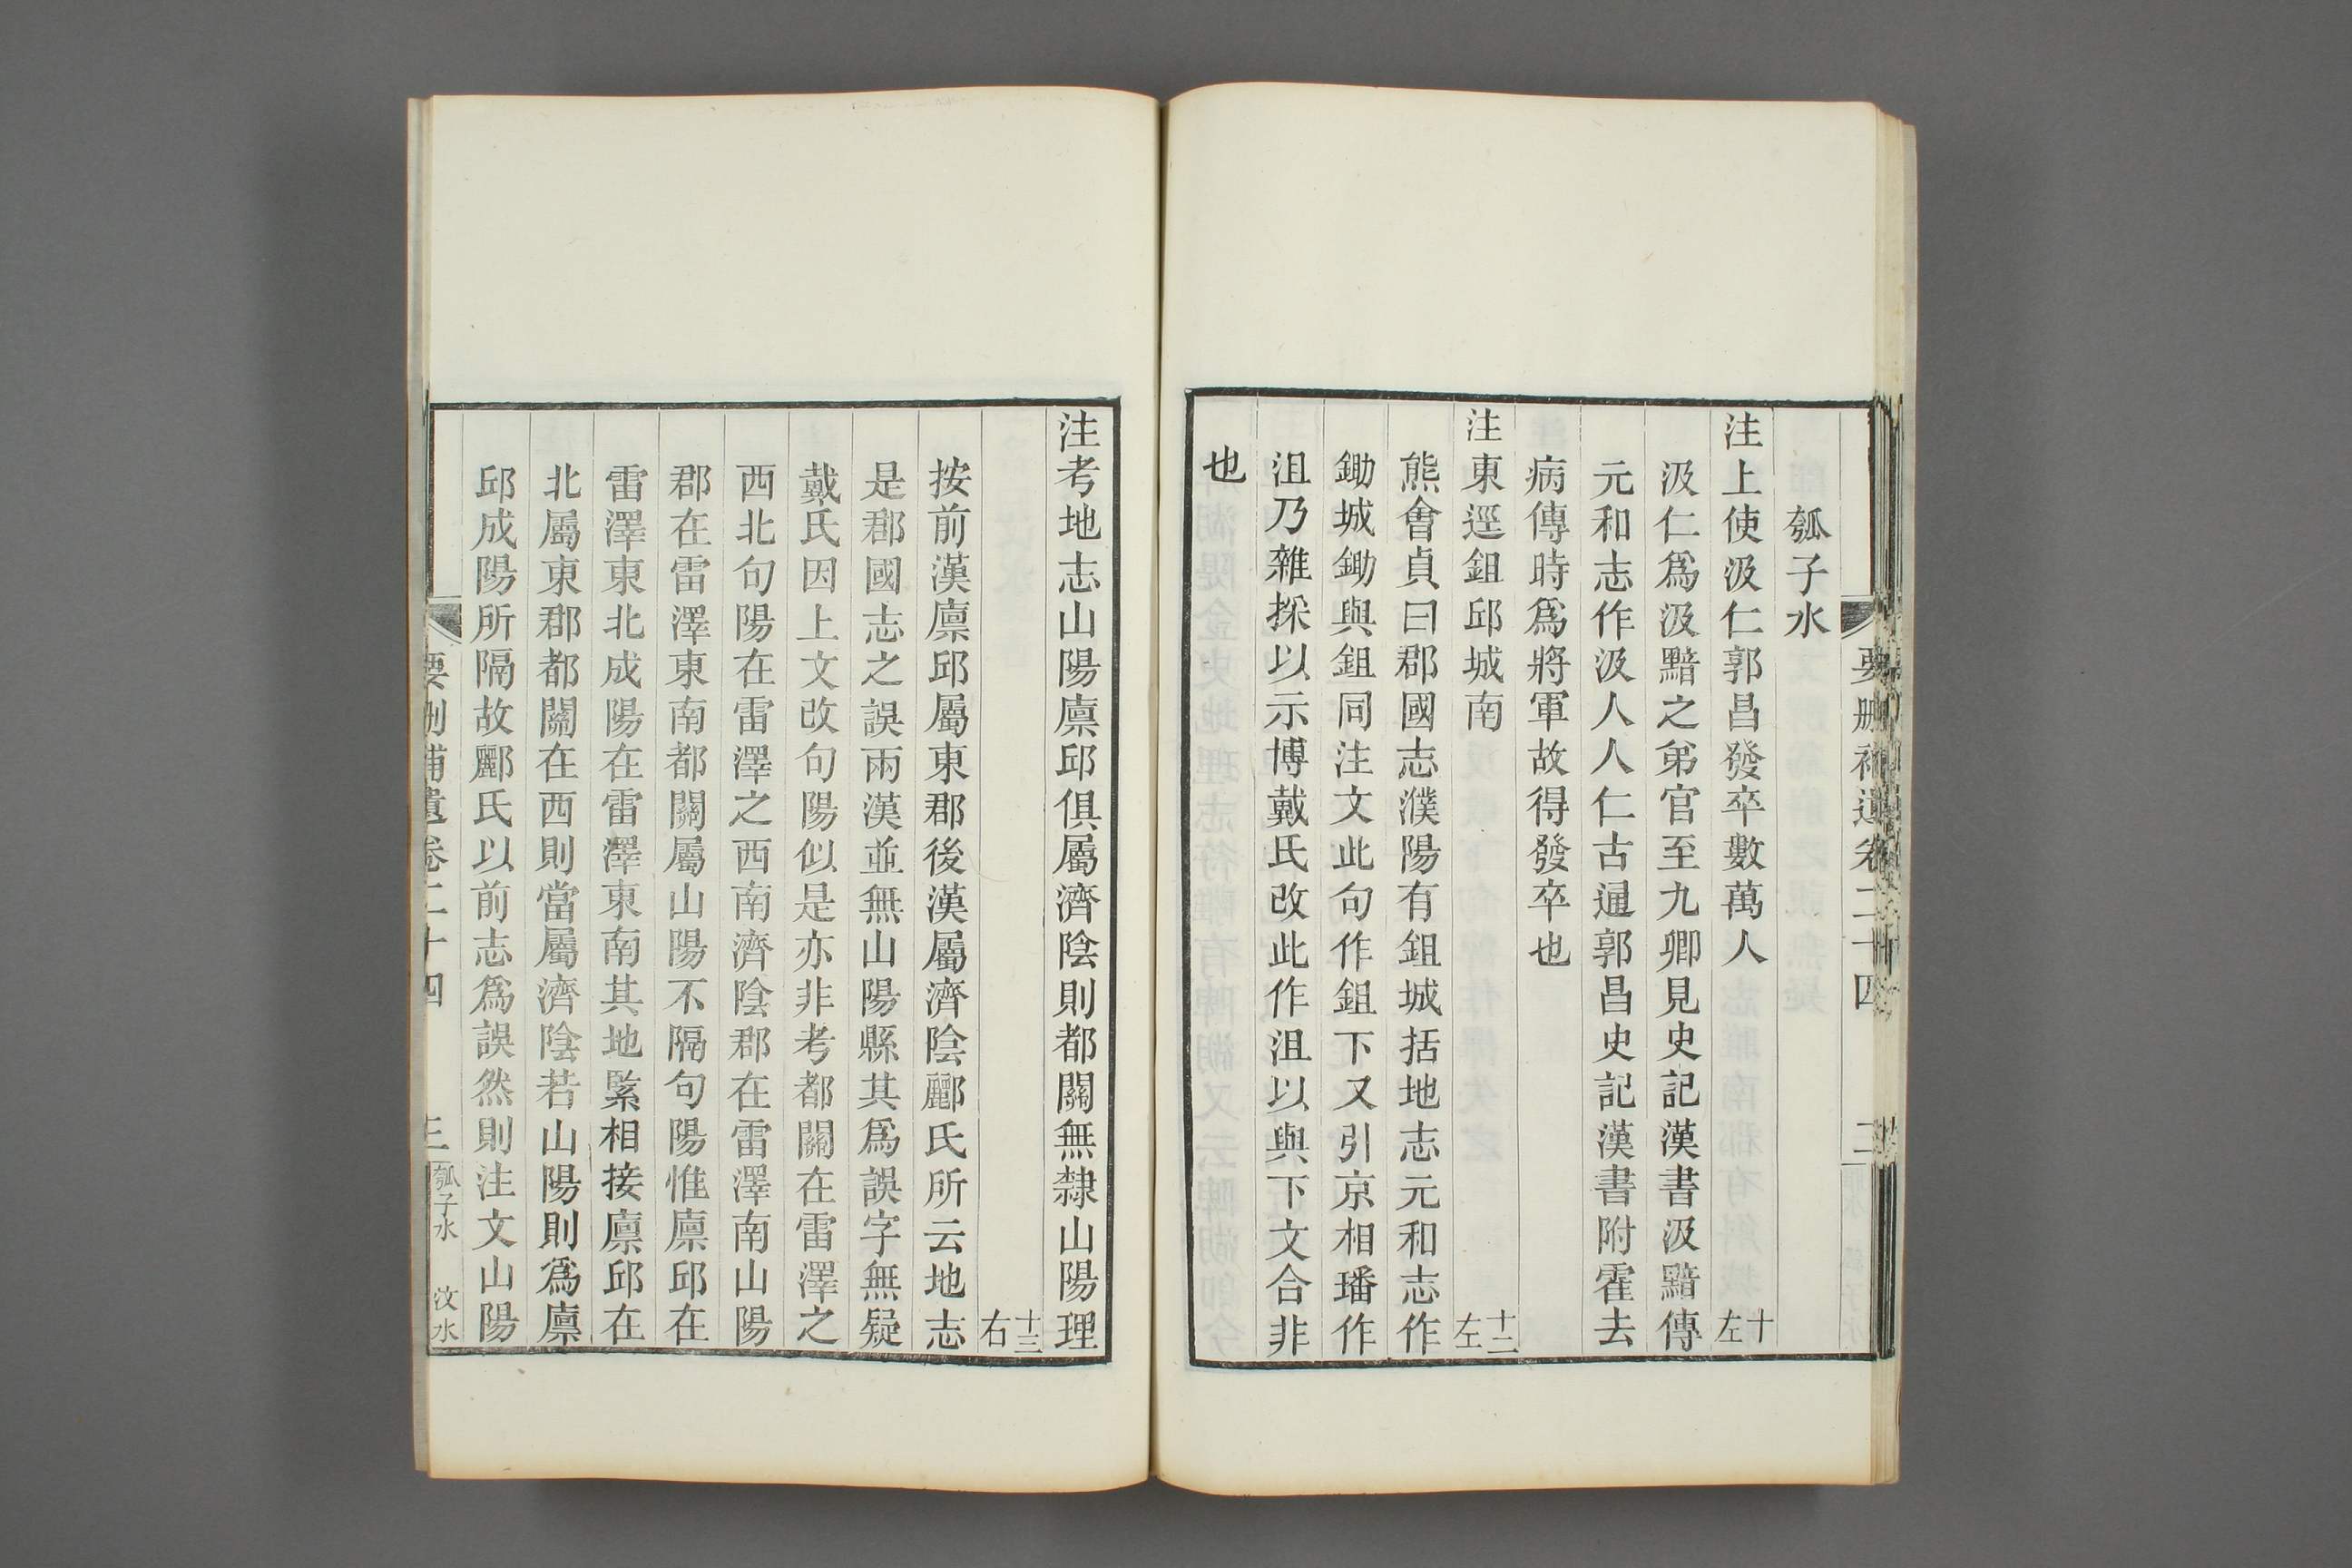 要刪補遺卷二十四
二
瓠子水
注上使汲仁郭昌發卒數萬人 十左
汲仁爲汲黯之弟官至九卿見史記漢書汲黯傳
元和志作汲人人仁古通郭昌史記漢書附霍去
病傳時爲將軍故得發卒也
注東逕鉏邱城南 十二左
熊會貞曰郡國志濮陽有鉏城括地志元和志作
鋤城鋤與鉏同注文此句作鉏下又引京相璠作
沮乃雜採以示博戴氏改此作沮以與下文合非
也
注考地志山陽廩邱俱屬濟陰則都關無隸山陽理
十三右
按前漢廩邱屬東郡後漢屬濟陰酈氏所云地志
是郡國志之誤兩漢並無山陽縣其爲誤字無疑
戴氏因上文改句陽似是亦非考都關在雷澤之
西北句陽在雷澤之西南濟陰郡在雷澤南山陽
郡在雷澤東南都關屬山陽不隔句陽惟廩邱在
雷澤東北成陽在雷澤東南其地緊相接廩邱在
北屬東郡都關在西則當屬濟陰若山陽則爲廩
邱成陽所隔故酈氏以前志爲誤然則注文山陽
要刪補遺卷二十四
三
瓠子水 汶水